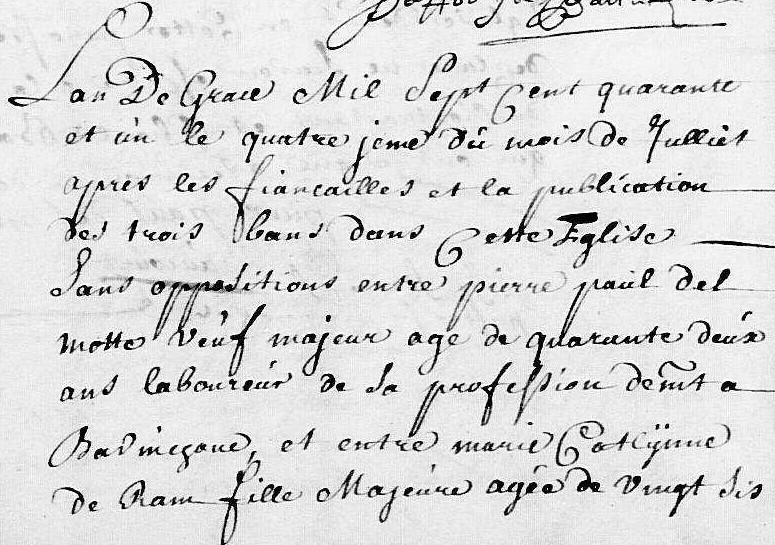 Lan De Grace Mil Sept Cent quarante
et un le quatre jeme du mois de Julliet
apres les fiancailles et la publication
des trois bans dans Cette Eglise
Sans oppositions entre pierre paul del
motte veuf majeur age de quarante deux
ans laboureur de sa profession demt a
Bavinchove, et entre marie Catherinne
de Ram fille Majeure agée de vingt sis